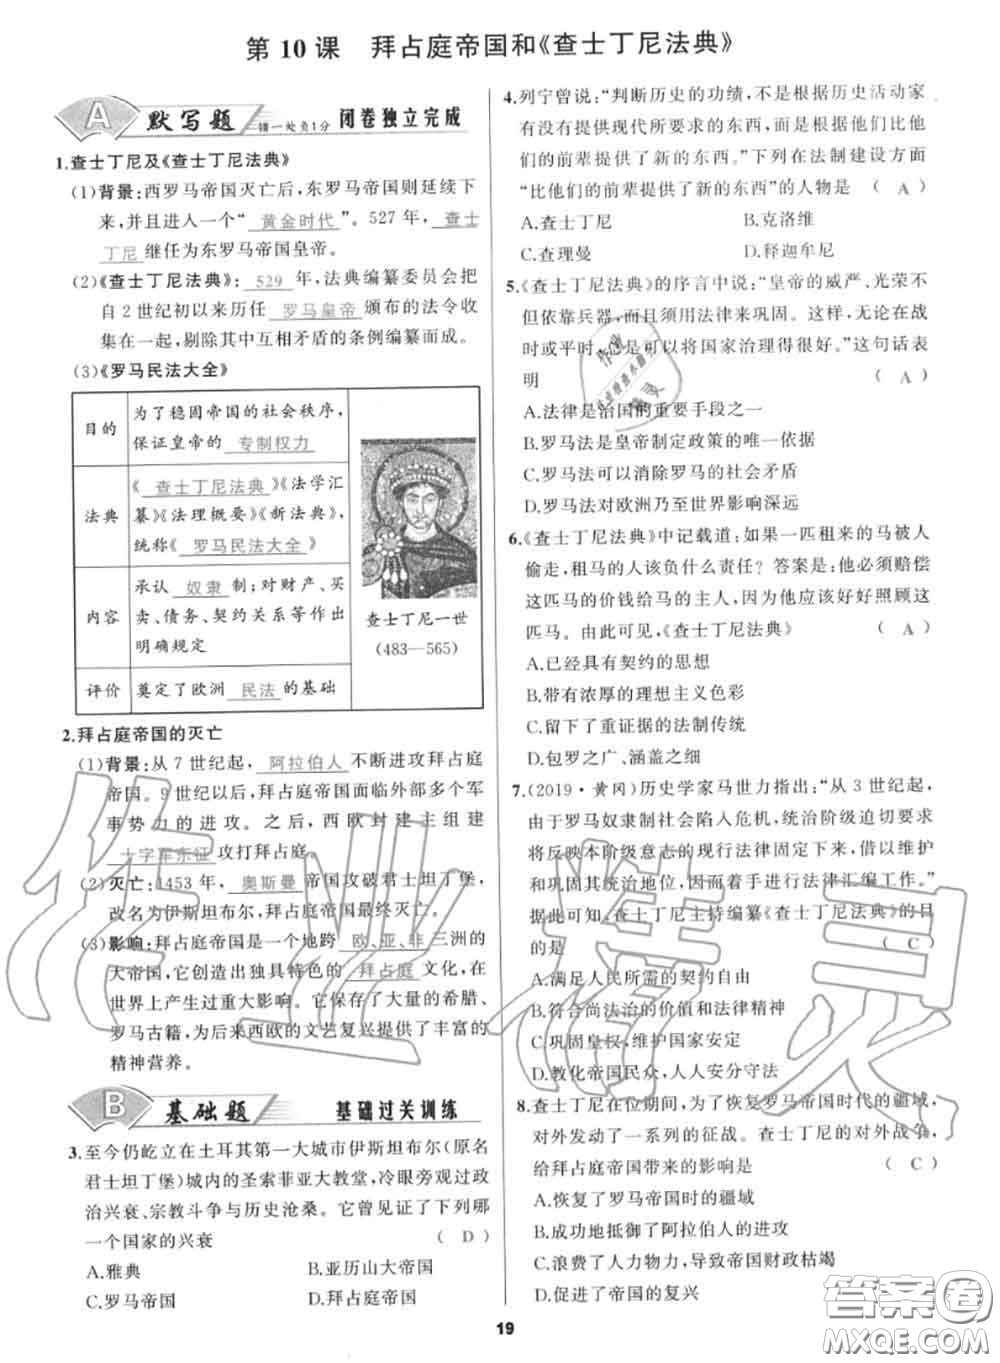 第 10 课　拜占庭帝国和《查士丁尼法典》
A 默写题 错一处负1分 闭卷独立完成
1.查士丁尼及《查士丁尼法典》
(1)背景:西罗马帝国灭亡后,东罗马帝国则延续下
来,并且进入一个“ 黄金时代 ”。527 年, 查士
丁尼 继任为东罗马帝国皇帝。
(2)《查士丁尼法典》: 529 年,法典编纂委员会把
自 2 世纪初以来历任 罗马皇帝 颁布的法令收
集在一起,剔除其中互相矛盾的条例编纂而成。
(3)《罗马民法大全》
目的
为了稳固帝国的社会秩序,
保证皇帝的 专制权力
法典
《 查士丁尼法典 》《法学汇
纂》《法理概要》《新法典》,
统称《 罗马民法大全 》
内容
承认 奴隶 制;对财产、买
卖、债务、契约关系等作出
明确规定
评价
奠定了欧洲 民法 的基础
查士丁尼一世
(483—565)
2.拜占庭帝国的灭亡
(1)背景:从 7 世纪起, 阿拉伯人 不断进攻拜占庭
帝国。9 世纪以后,拜占庭帝国面临外部多个军
事势力的进攻。之后,西欧封建主组建
十字军东征 攻打拜占庭。
(2)灭亡:1453 年, 奥斯曼 帝国攻破君士坦丁堡,
改名为伊斯坦布尔,拜占庭帝国最终灭亡。
(3)影响:拜占庭帝国是一个地跨 欧、亚、非 三洲的
大帝国,它创造出独具特色的 拜占庭 文化,在
世界上产生过重大影响。它保存了大量的希腊、
罗马古籍,为后来西欧的文艺复兴提供了丰富的
精神营养。
B 基础题 基础过关训练
3.至今仍屹立在土耳其第一大城市伊斯坦布尔(原名
君士坦丁堡)城内的圣索菲亚大教堂,冷眼旁观过政
治兴衰、宗教斗争与历史沧桑。它曾见证了下列哪
一个国家的兴衰 ( D )
A.雅典 B.亚历山大帝国
C.罗马帝国 D.拜占庭帝国
4.列宁曾说:“判断历史的功绩,不是根据历史活动家
有没有提供现代所要求的东西,而是根据他们比他
们的前辈提供了新的东西。”下列在法制建设方面
“比他们的前辈提供了新的东西”的人物是 ( A )
A.查士丁尼 B.克洛维
C.查理曼 D.释迦牟尼
5.《查士丁尼法典》的序言中说:“皇帝的威严、光荣不
但依靠兵器,而且须用法律来巩固。这样,无论在战
时或平时,总是可以将国家治理得很好。”这句话表
明 ( A )
A.法律是治国的重要手段之一
B.罗马法是皇帝制定政策的唯一依据
C.罗马法可以消除罗马的社会矛盾
D.罗马法对欧洲乃至世界影响深远
6.《查士丁尼法典》中记载道:如果一匹租来的马被人
偷走,租马的人该负什么责任？答案是:他必须赔偿
这匹马的价钱给马的主人,因为他应该好好照顾这
匹马。由此可见,《查士丁尼法典》 ( A )
A.已经具有契约的思想
B.带有浓厚的理想主义色彩
C.留下了重证据的法制传统
D.包罗之广、涵盖之细
7.(2019·黄冈)历史学家马世力指出:“从 3 世纪起,
由于罗马奴隶制社会陷入危机,统治阶级迫切要求
将反映本阶级意志的现行法律固定下来,借以维护
和巩固其统治地位,因而着手进行法律汇编工作。”
据此可知,查士丁尼主持编纂《查士丁尼法典》的目
的是 ( C )
A.满足人民所需的契约自由
B.符合尚法治的价值和法律精神
C.巩固皇权,维护国家安定
D.教化帝国民众,人人安分守法
8.查士丁尼在位期间,为了恢复罗马帝国时代的疆域,
对外发动了一系列的征战。查士丁尼的对外战争,
给拜占庭帝国带来的影响是 ( C )
A.恢复了罗马帝国时的疆域
B.成功地抵御了阿拉伯人的进攻
C.浪费了人力物力,导致帝国财政枯竭
D.促进了帝国的复兴
19
作业精灵
答案圈
MXQE.COM